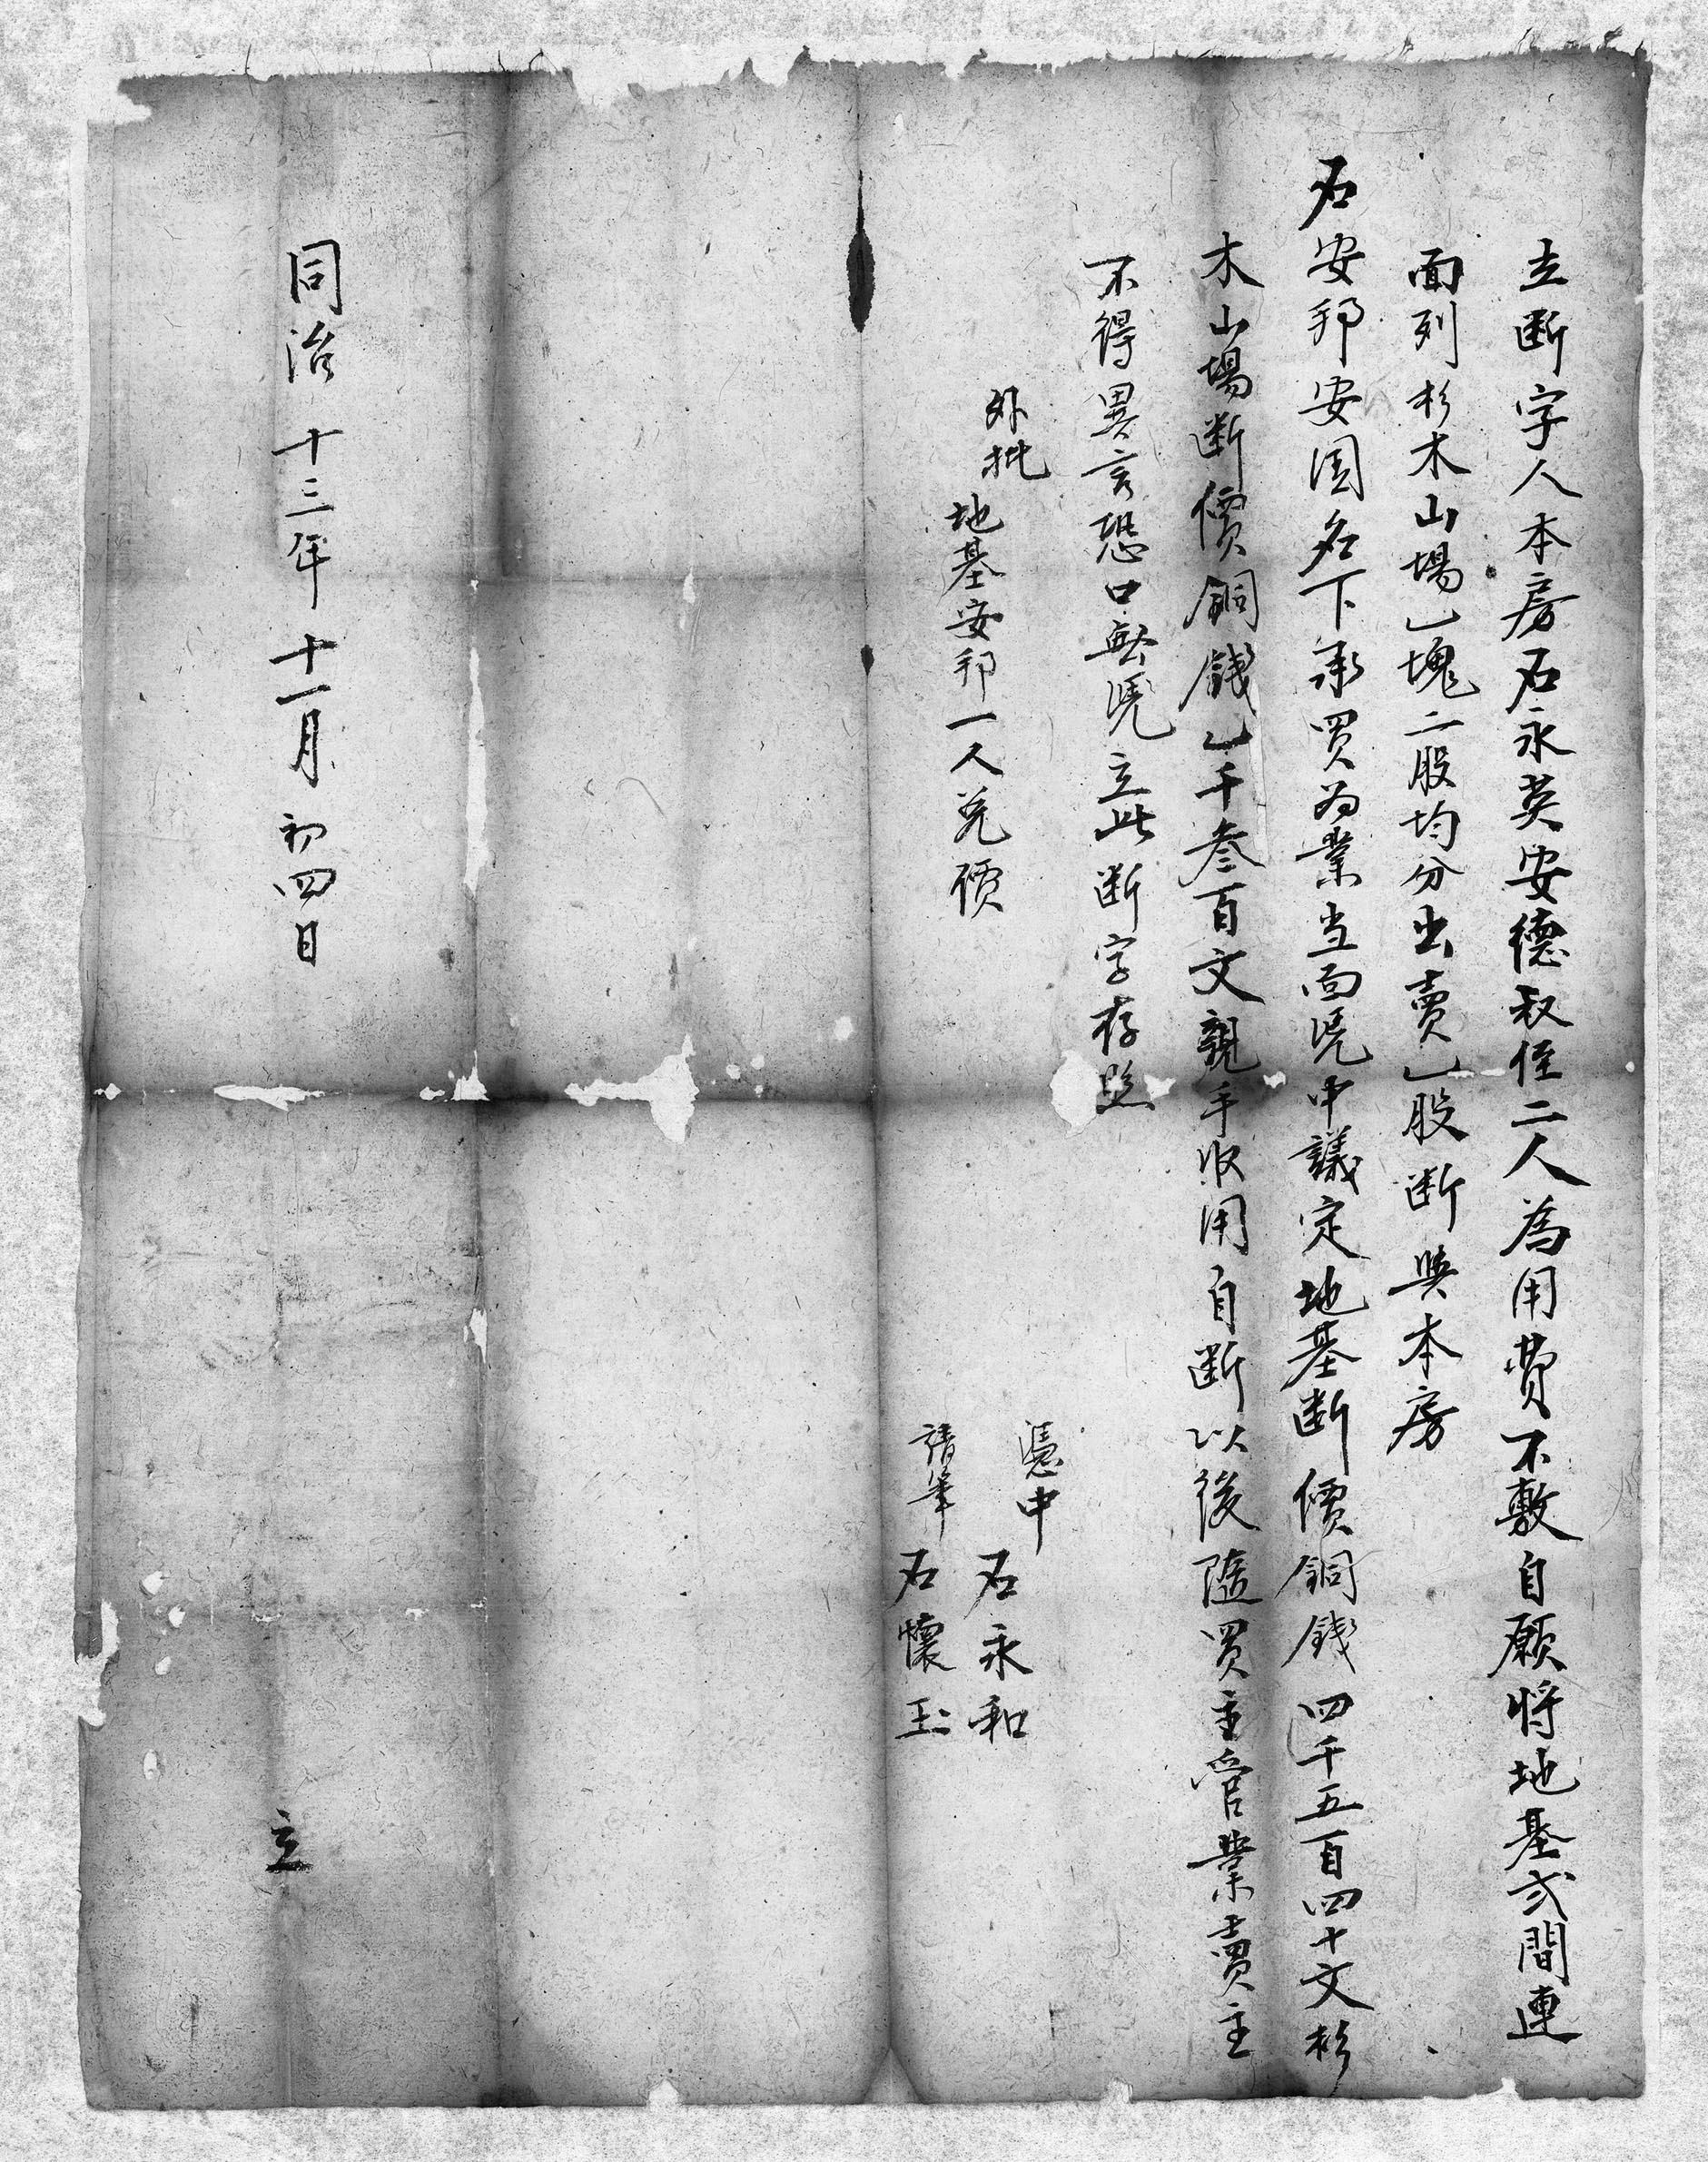 立断字人本房石永英安德叔侄二人為用費不敷自願将地基弍間連
面列杉木山場乙塊二股均分出賣乙股断與本房
石安邦安国名下承買为業当面凭中議定地基断價銅錢四千五百四十文杉
木山場断價銅錢乙千叁百文親手收用自断以後隨買主管業賣主
不得異言恐口無凭立此断字存照
外批
地基安邦一人兑價
憑中 石永和
請筆 石懷玉
同治十三年十一月初四日 立